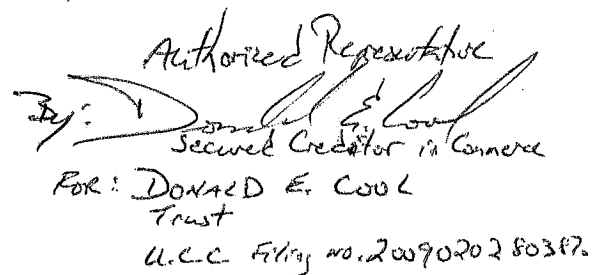 Authorized Representative
By: Donald E. Cool
Secured Creditor in Commerce
FOR: DONALD E. COOL
Trust
U.C.C Filing no. 2009020280387.